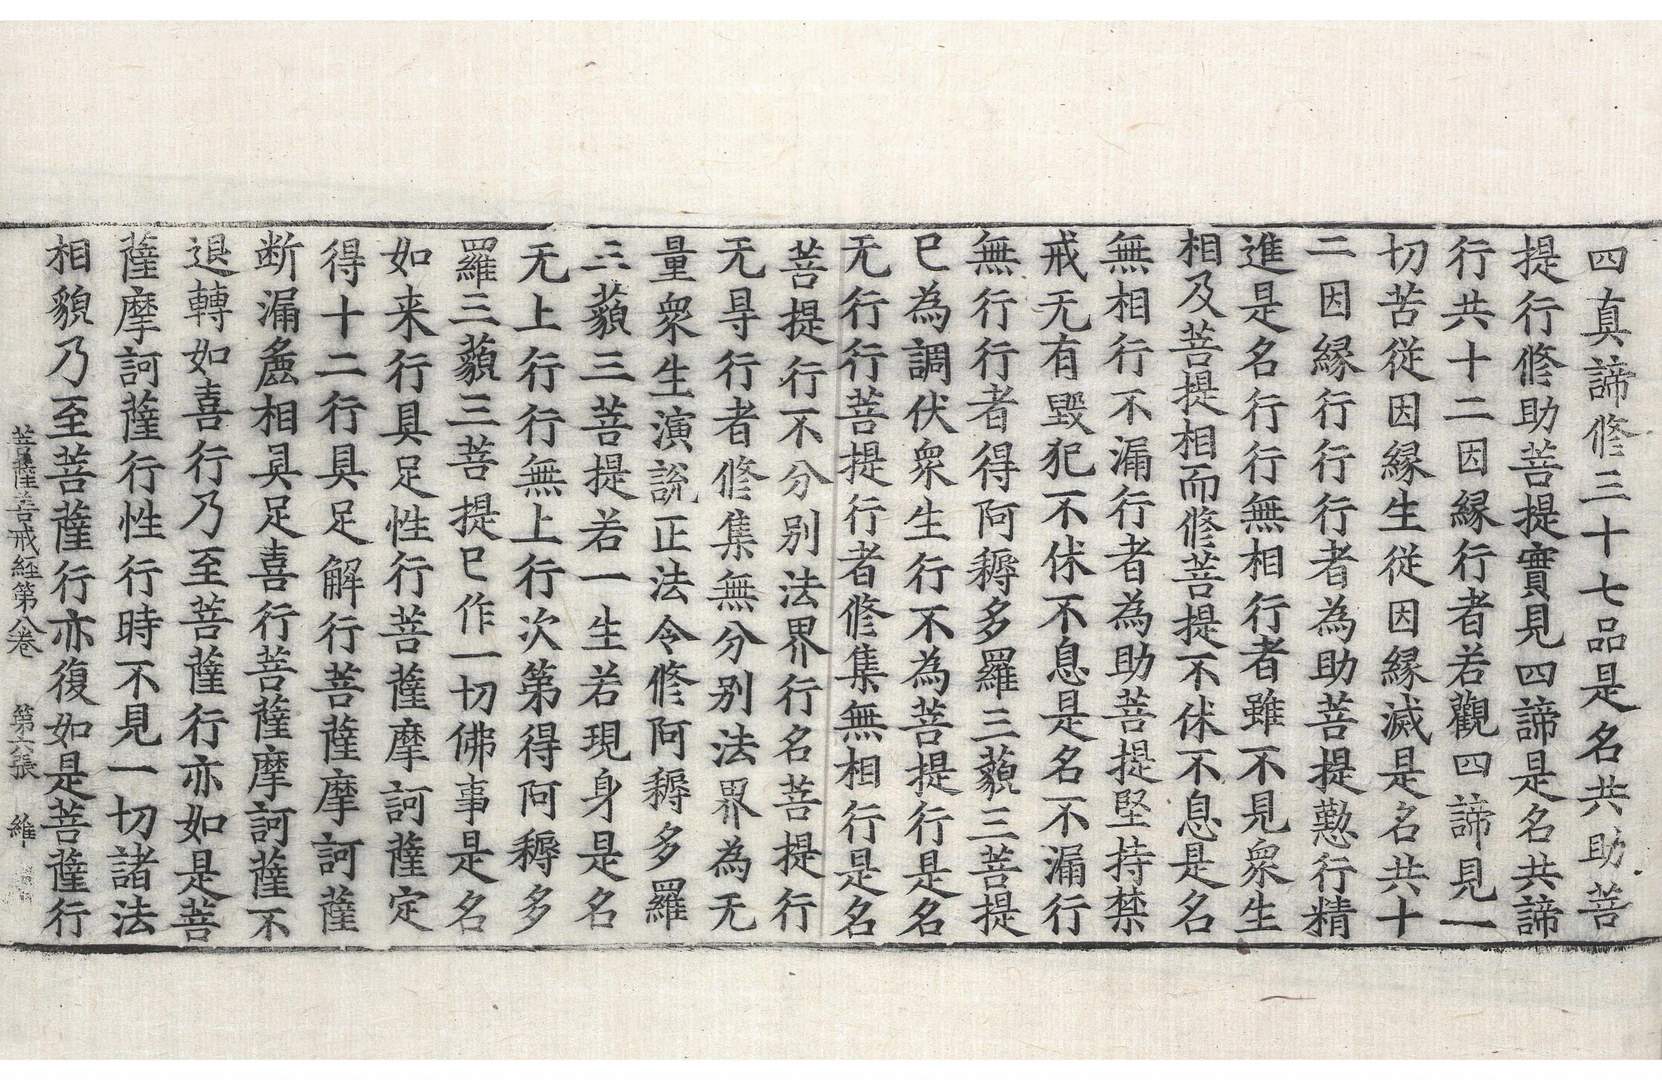 四真諦修三十七品是名共助菩
提行修助菩提實見四諦是名共諦
行共十二因縁行者若觀四諦見一
切苦從因縁生從因縁滅是名共十
二因縁行行行者為助菩提懃行精
進是名行行無相行者雖不見衆生
相及菩提相而修菩提不休不息是名
無相行不漏行者為助菩提堅持禁
戒无有毀犯不休不息是名不漏行
無行行者得阿耨多羅三藐三菩提
已為調伏衆生行不為菩提行是名
无行行菩提行者修集無相行是名
菩提行不分别法界行名菩提行
无㝵行者修集無分别法界為无
量衆生演説正法令修阿耨多羅
三藐三菩提若一生若現身是名
无上行行無上行次第得阿耨多
羅三藐三菩提已作一切佛事是名
如来行具足性行菩薩摩訶薩定
得十二行具足解行菩薩摩訶薩
断漏麁相具足喜行菩薩摩訶薩不
退轉如喜行乃至菩薩行亦如是菩
薩摩訶薩行性行時不見一切諸法
相貌乃至菩薩行亦復如是菩薩行
菩薩善戒經第八卷 第六張 維